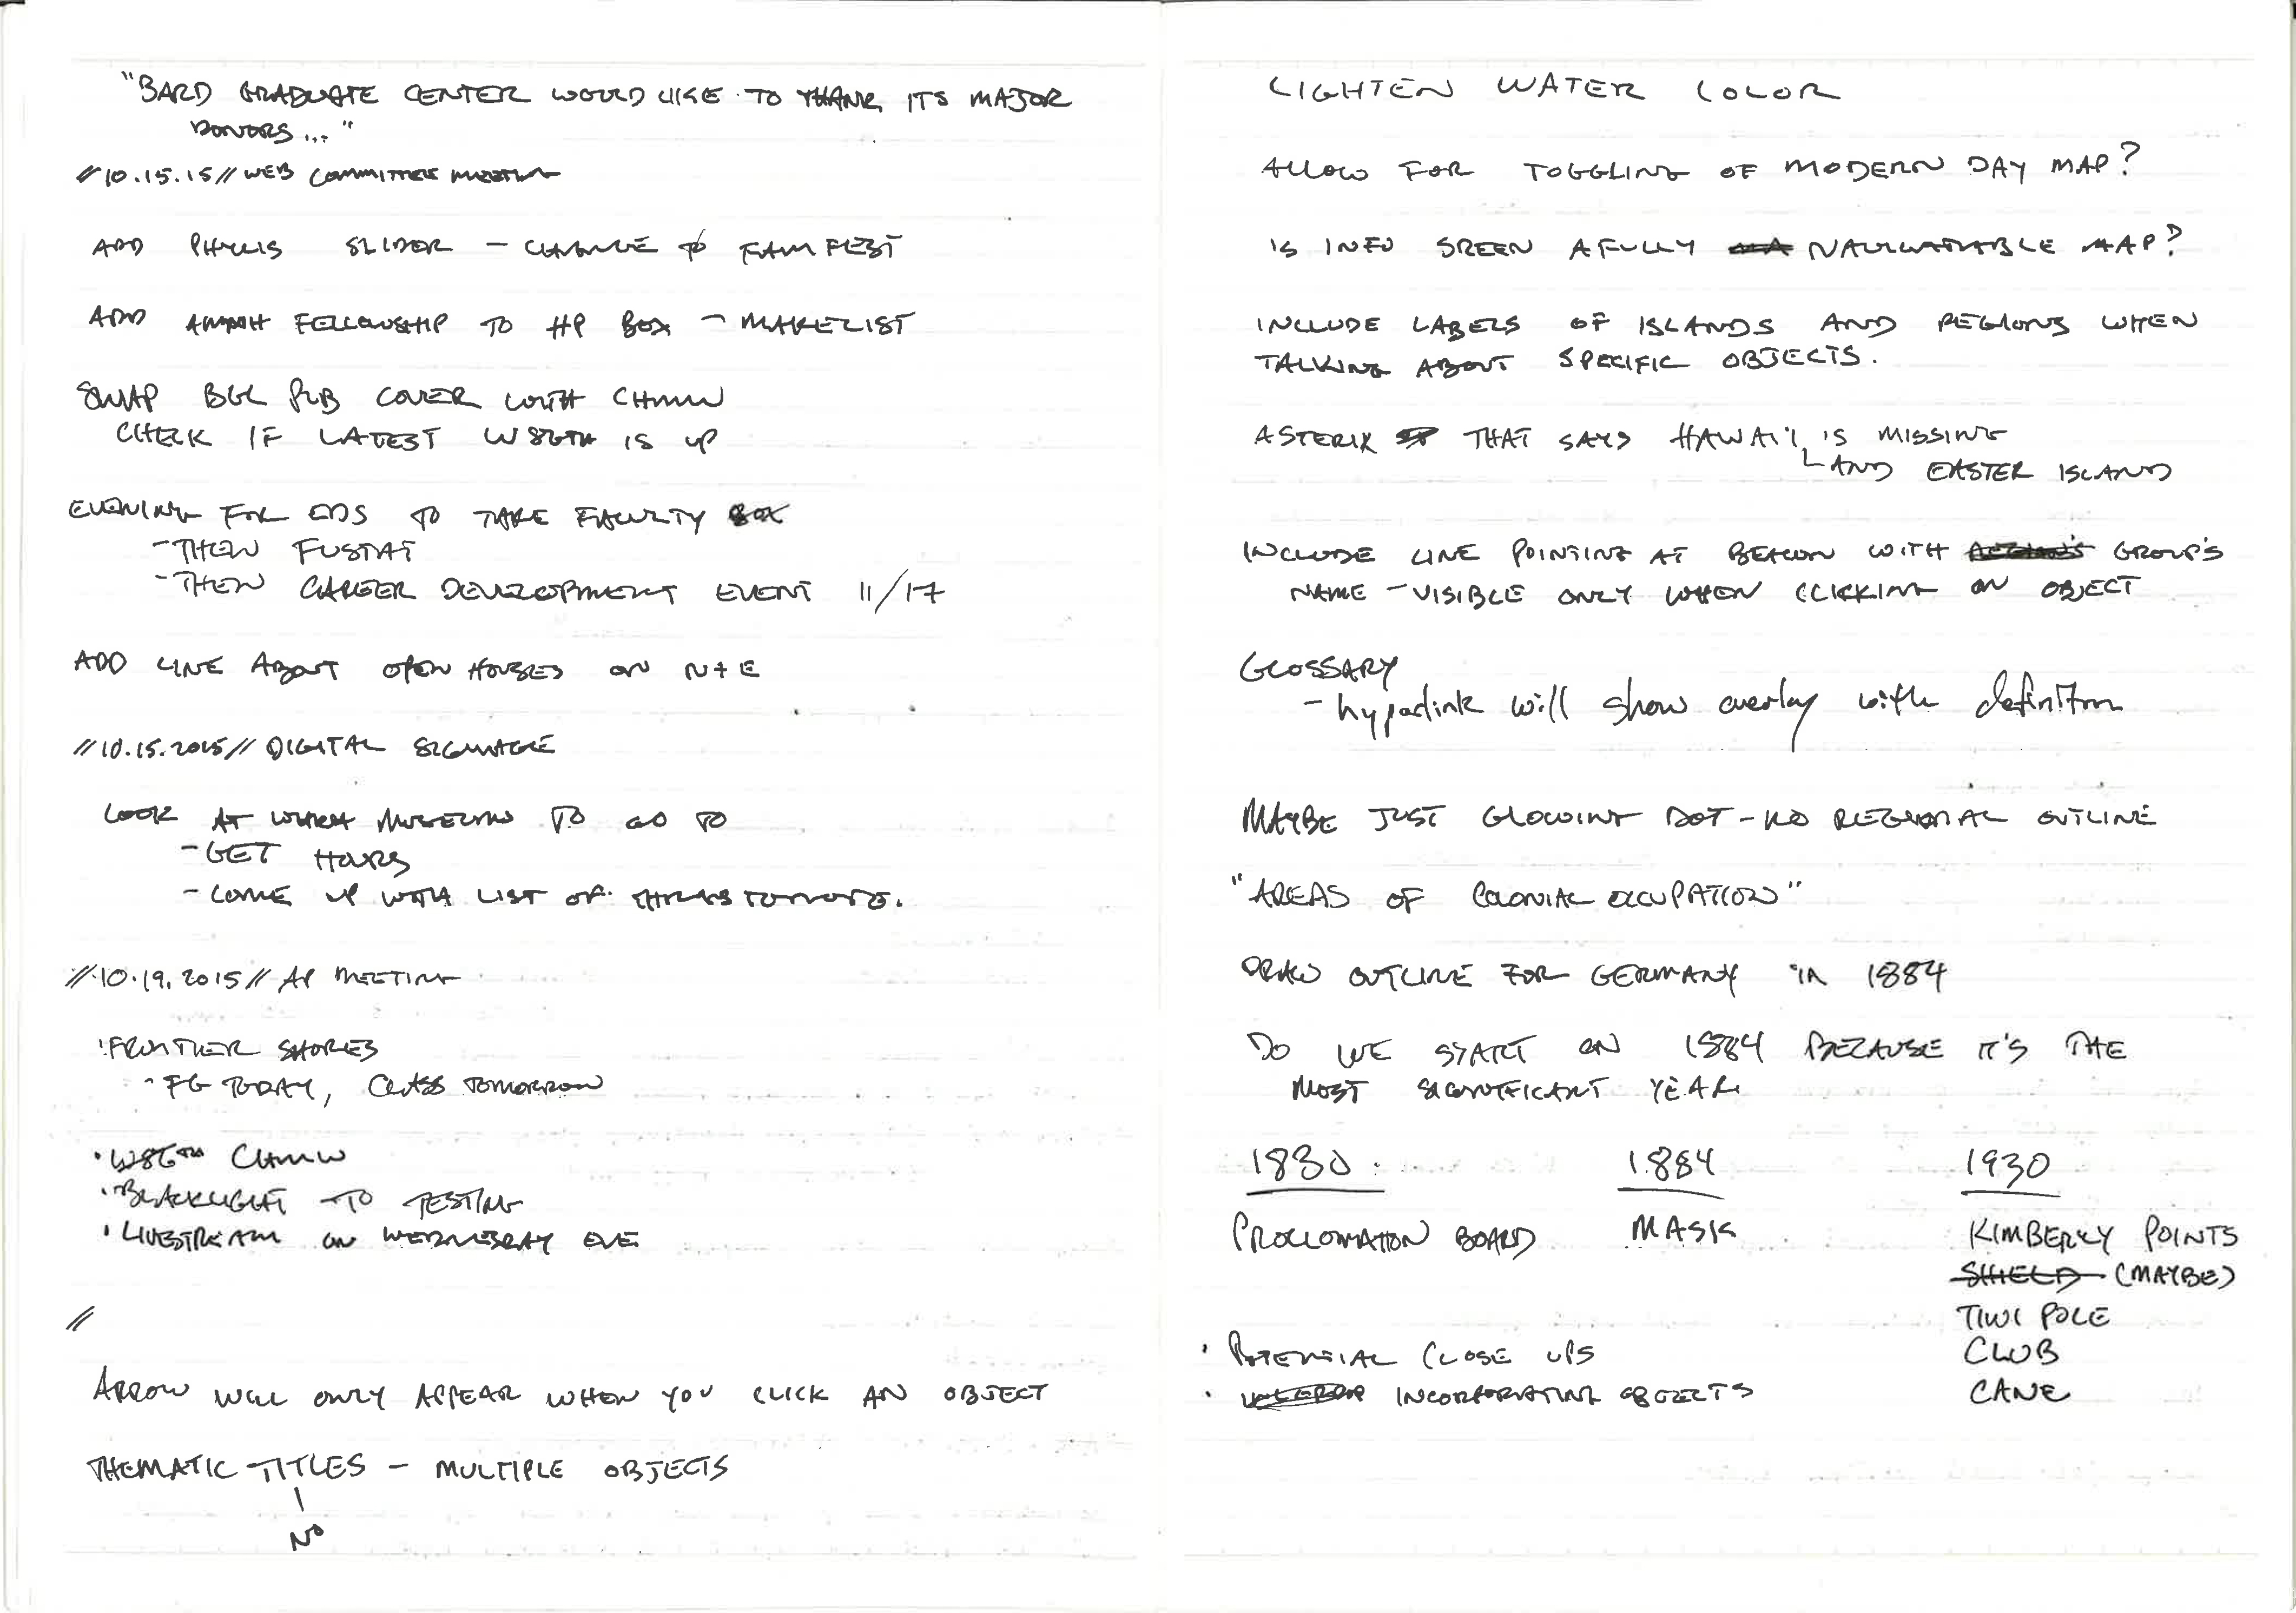 "BARD GRADUATE CENTER WOULD LIKE TO THANK ITS MAJOR
DONORS..."
//10.15.15// WEB COMMITTEE MEETING
ADD PHYLLIS SLIDER - CHANGE TO FAM FEST
ADD FELLOWSHIP TO HP BOX - MAKE LIST
SWAP BGC PUB COVER WITH CHMW
CHECK IF LATEST W86TH IS UP
EVENING FOR EDS TO TAKE FACULTY BOX
- THEN FUSTAT
- THEN CAREER DEVELOPMENT EVENT 11/17
ADD LINE ABOUT OPEN HOUSES ON N+E
//10.15.2015// DIGITAL SIGNAGE
LOOK AT WHICH MUSEUMS TO GO TO
- GET HOURS
- COME UP WITH LIST OF THINGS TO NOTE.
//10.19.2015// AP MEETING
· FRONTIER SHORES
- FG TODAY, CLASS TOMORROW
· W86TH CHMW
· BLACKLIGHT TO TESTING
· LIVESTREAM ON WEDNESDAY EVE
//
ARROW WILL ONLY APPEAR WHEN YOU CLICK AN OBJECT
THEMATIC TITLES - MULTIPLE OBJECTS
NO
LIGHTEN WATER COLOR
ALLOW FOR TOGGLING OF MODERN DAY MAP?
IS INFO SREEN A FULLY NAVIGATABLE MAP?
INCLUDE LABELS OF ISLANDS AND REGIONS WHEN
TALKING ABOUT SPECIFIC OBJECTS.
ASTERIK THAT SAYS HAWAI'I IS MISSING
AND EASTER ISLAND
INCLUDE LINE POINTING AT BEACON WITH GROUP'S
NAME - VISIBLE ONLY WHEN CLICKING ON OBJECT
GLOSSARY
- hyperlink will show overlay with definition
MAYBE JUST GLOWING DOT - NO REGIONAL OUTLINE
"AREAS OF COLONIAL OCCUPATION"
DRAW OUTLINE FOR GERMANY IN 1884
DO WE START ON 1884 BECAUSE IT'S THE
MOST SIGNIFICANT YEAR
1830 1884 1930
PROCLOMATION BOARD MASK KIMBERLY POINTS
SHIELD (MAYBE)
TIWI POLE
CLUB
CANE
· POTENTIAL CLOSE UPS
· INCORPORATING OBJECTS